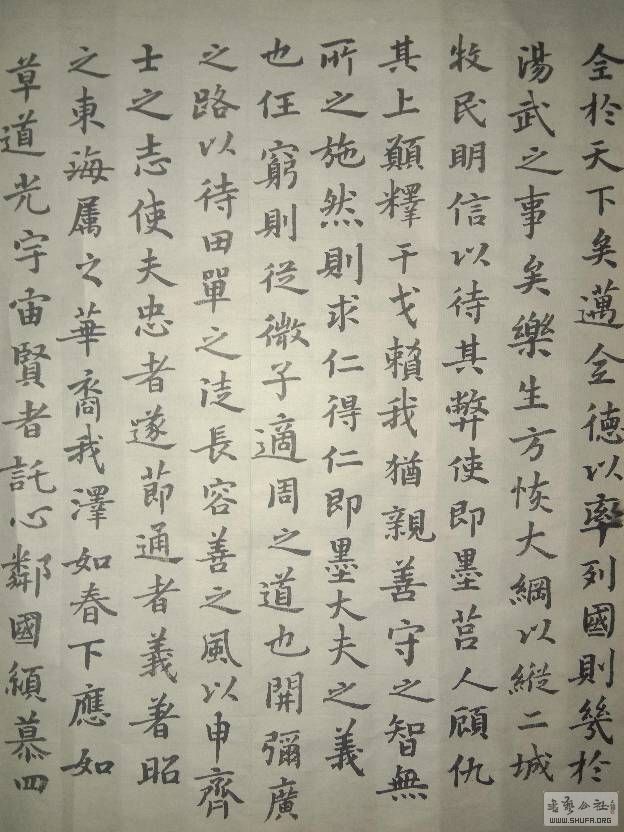 全於天下矣邁全德以率列國則幾於
湯武之事矣樂生方恢大綱以縱二城
牧民明信以待其弊使即墨莒人顧仇
其上願釋干戈賴我猶親善守之智無
所之施然則求仁得仁即墨大夫之義
也任窮則從微子適周之道也開彌廣
之路以待田單之徒長容善之風以申齊
士之志使夫忠者遂節通者義著昭
之東海屬之華裔我澤如春下應如
草道光宇宙賢者託心鄰國傾慕四
书艺公社
WWW.SHUFA.ORG